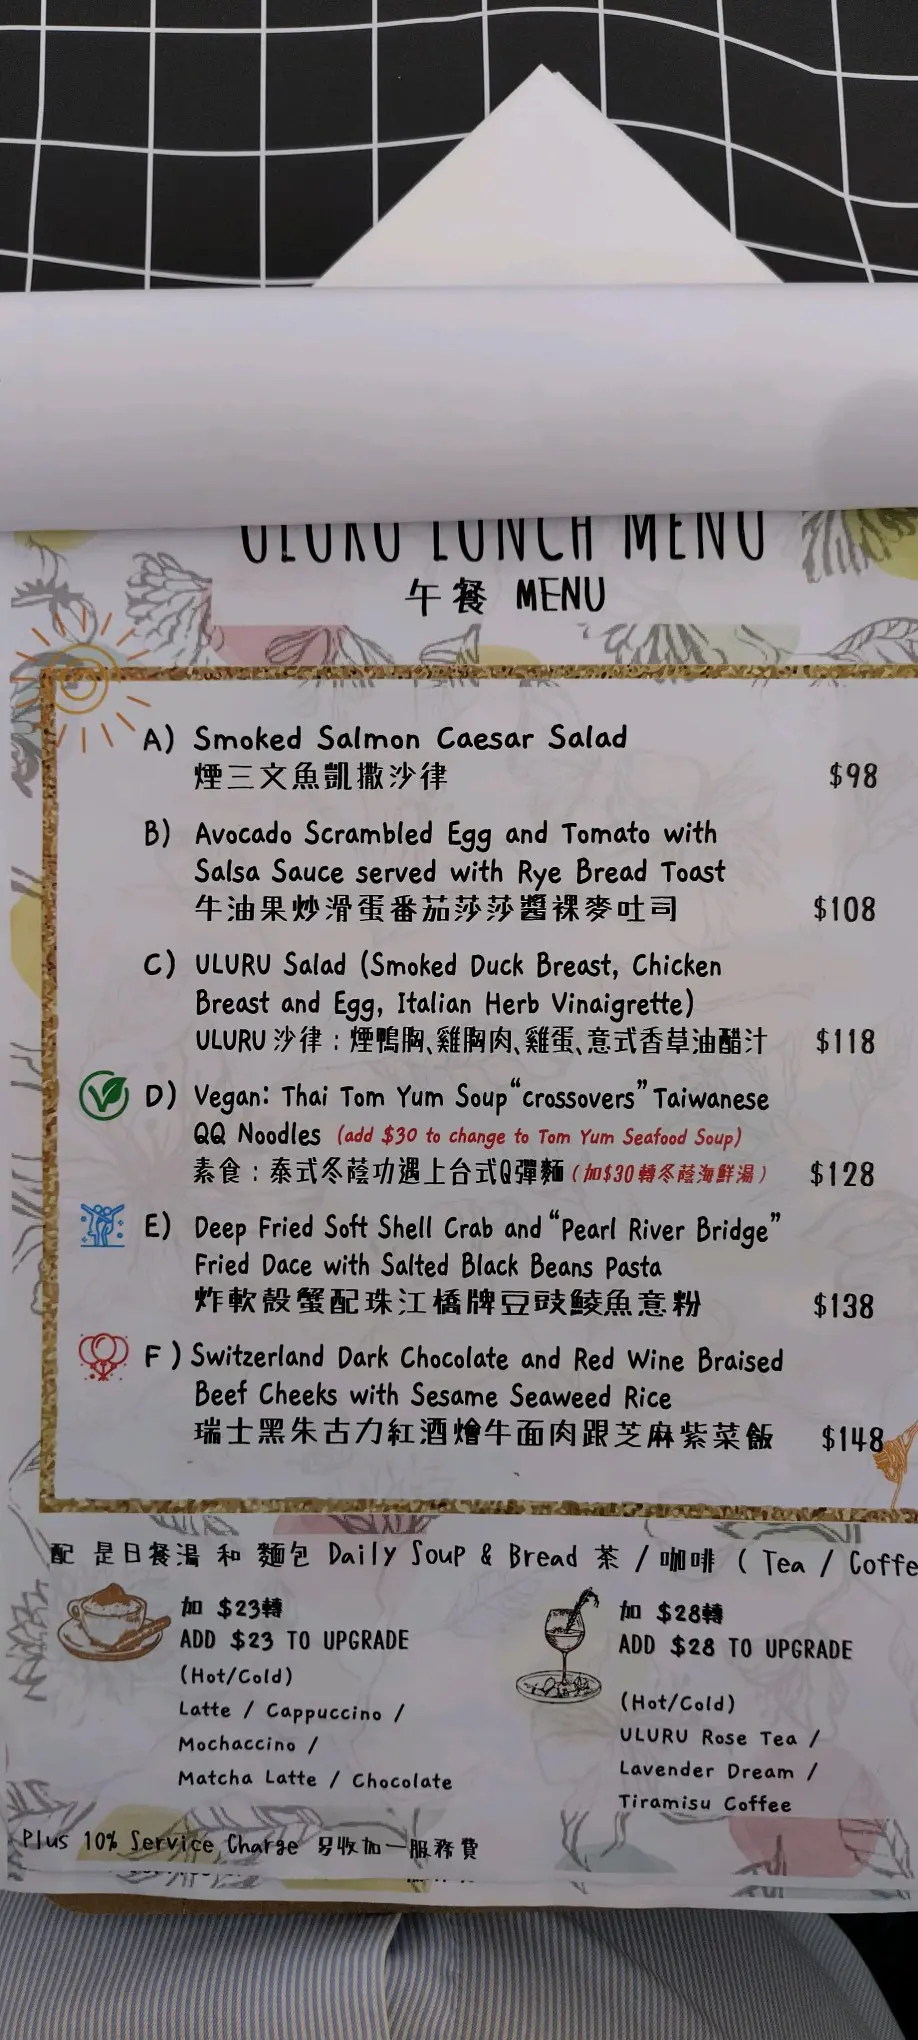 ULURU LUNCH MENU
午餐 MENU
A) Smoked Salmon Caesar Salad
煙三文魚凱撒沙律 $98
B) Avocado Scrambled Egg and Tomato with
Salsa Sauce served with Rye Bread Toast
牛油果炒滑蛋番茄莎莎醬裸麥吐司 $108
C) ULURU Salad (Smoked Duck Breast, Chicken
Breast and Egg, Italian Herb Vinaigrette)
ULURU 沙律：煙鴨胸、雞胸肉、雞蛋、意式香草油醋汁 $118
D) Vegan: Thai Tom Yum Soup “crossovers” Taiwanese
QQ Noodles (add $30 to change to Tom Yum Seafood Soup)
素食：泰式冬蔭功遇上台式Q彈麵（加$30轉冬蔭海鮮湯） $128
E) Deep Fried Soft Shell Crab and “Pearl River Bridge”
Fried Dace with Salted Black Beans Pasta
炸軟殼蟹配珠江橋牌豆豉鯪魚意粉 $138
F) Switzerland Dark Chocolate and Red Wine Braised
Beef Cheeks with Sesame Seaweed Rice
瑞士黑朱古力紅酒燴牛面肉跟芝麻紫菜飯 $148
配 是日餐湯 和 麵包 Daily Soup & Bread 茶 / 咖啡 ( Tea / Coffe
加 $23轉
ADD $23 TO UPGRADE
(Hot/Cold)
Latte / Cappuccino /
Mochaccino /
Matcha Latte / Chocolate
加 $28轉
ADD $28 TO UPGRADE
(Hot/Cold)
ULURU Rose Tea /
Lavender Dream /
Tiramisu Coffee
Plus 10% Service Charge 另收加一服務費